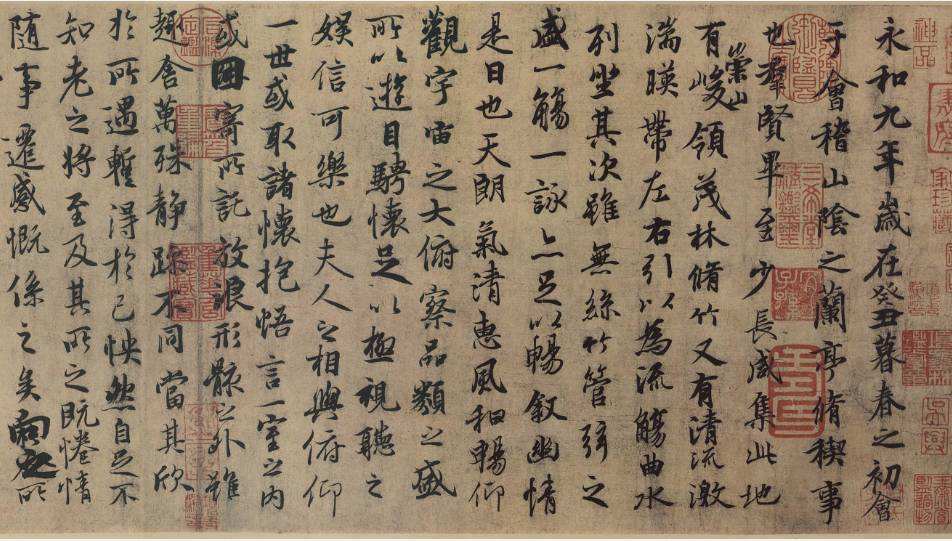 神品
永和九年歲在癸丑暮春之初會
于會稽山陰之蘭亭脩稧事
也羣賢畢至少長咸集此地
有崇山峻領茂林脩竹又有清流激
湍暎帶左右引以為流觴曲水
列坐其次雖無絲竹管弦之
盛一觴一詠亦足以暢敘幽情
是日也天朗氣清惠風和暢仰
觀宇宙之大俯察品類之盛
所以遊目騁懷足以極視聽之
娛信可樂也夫人之相與俯仰
一世或取諸懷抱悟言一室之內
或因寄所託放浪形骸之外雖
趣舍萬殊靜躁不同當其欣
於所遇蹔得於己怏然自足不
知老之將至及其所之既惓情
隨事遷感慨係之矣向之所
三希堂精鑑璽
宜子孫